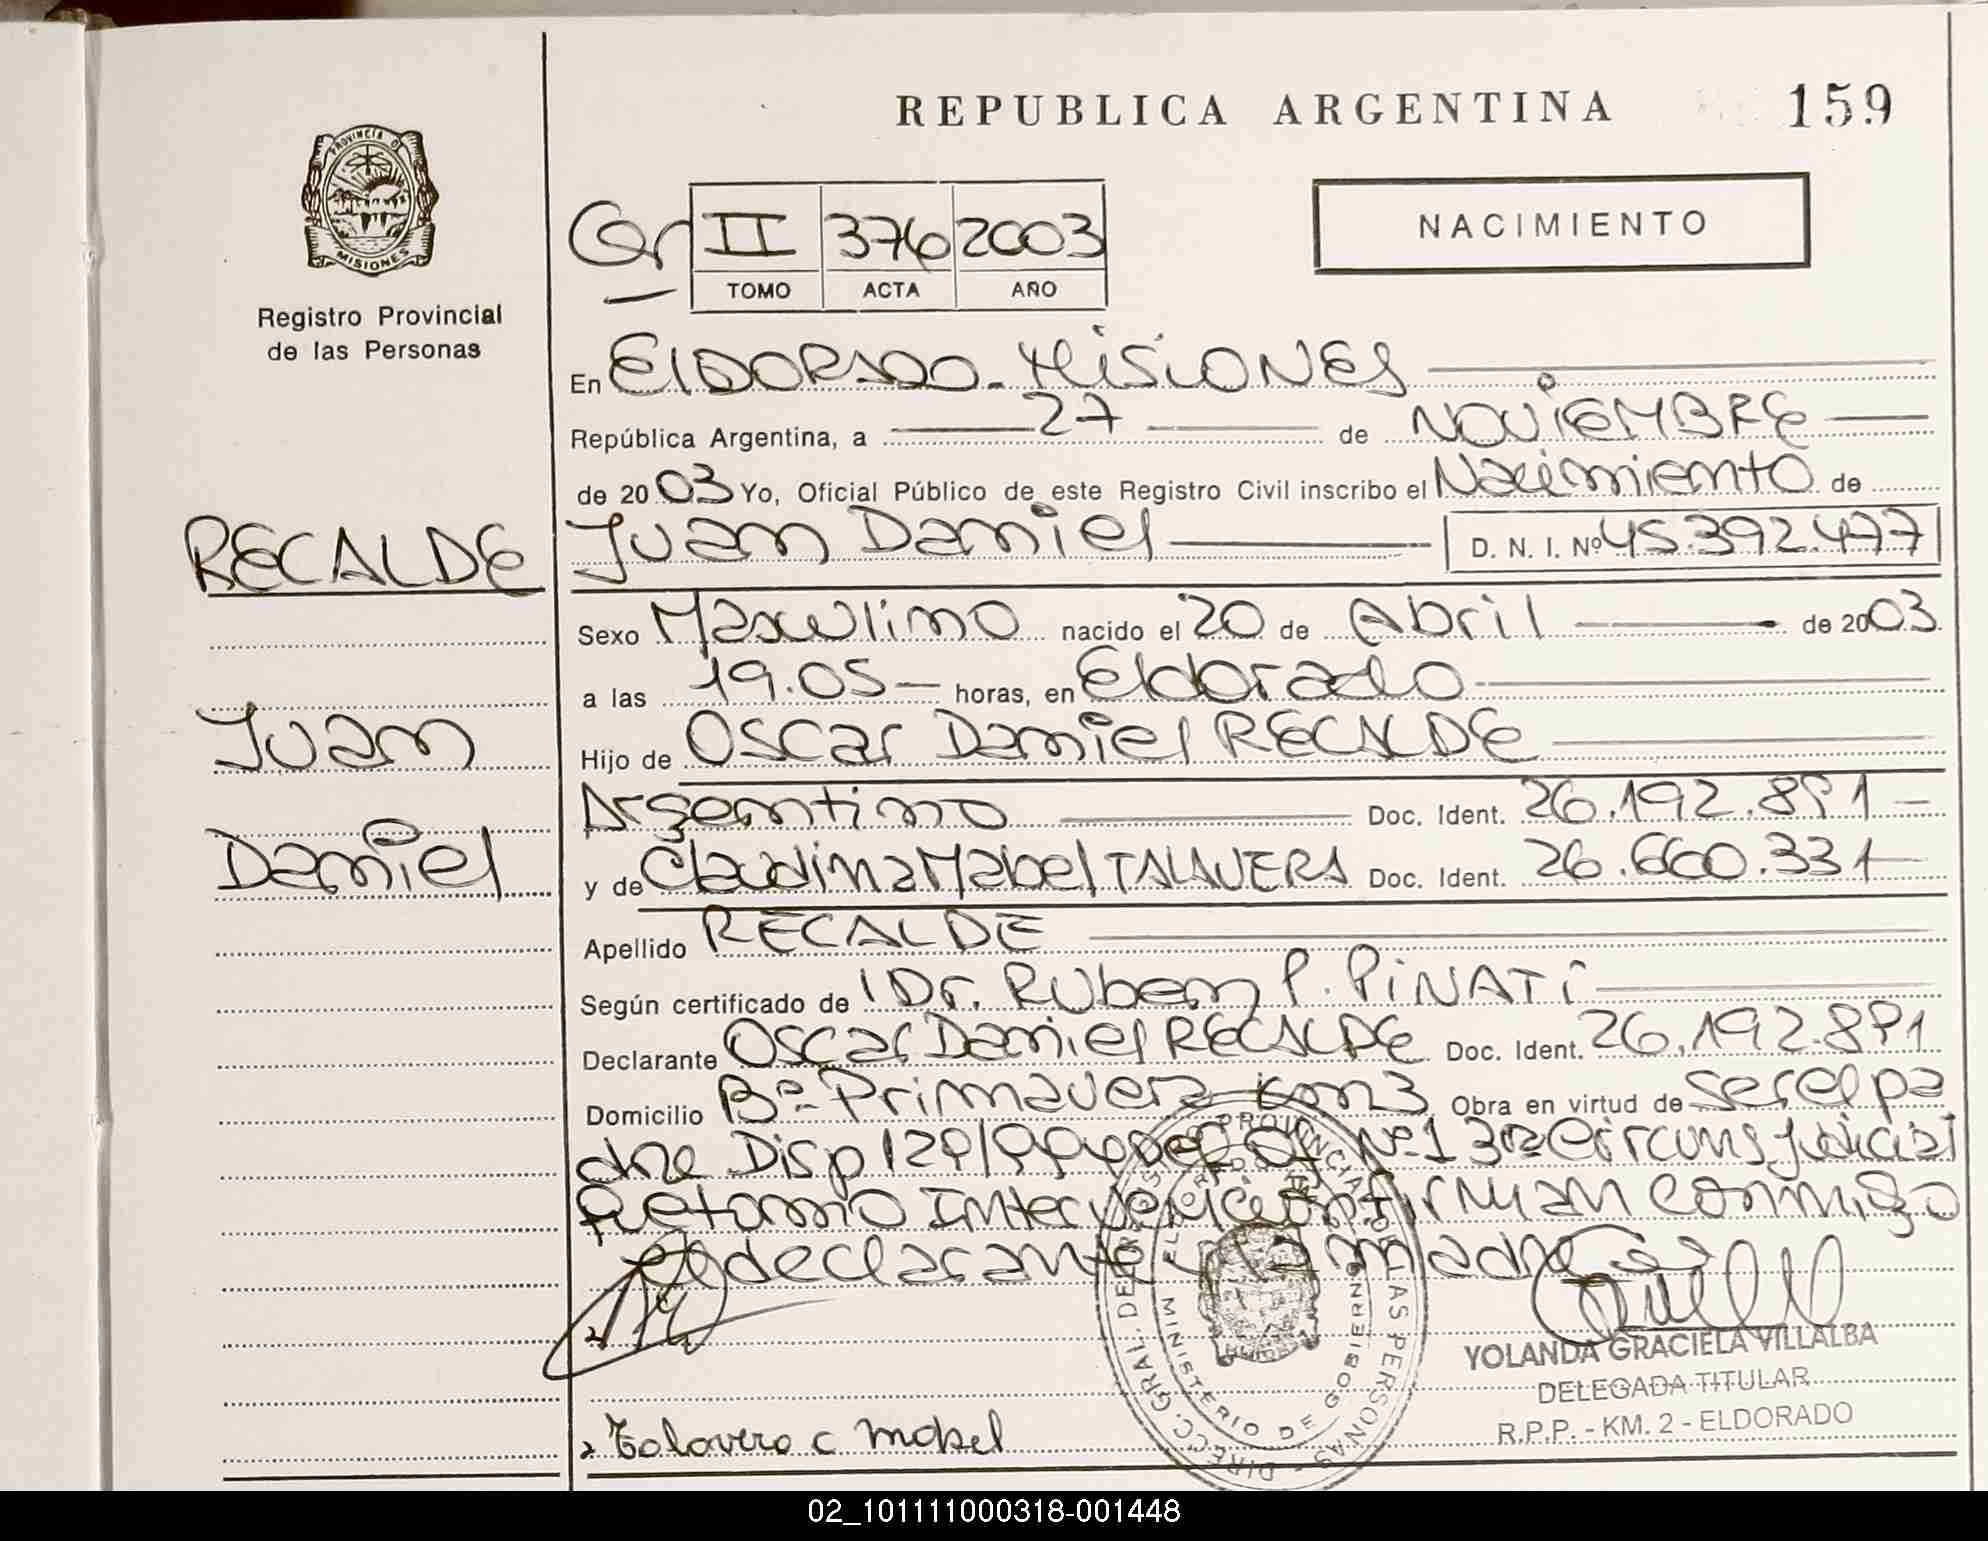 REPUBLICA ARGENTINA 159
PROVINCIA D
MISIONES
Registro Provincial
de las Personas
NACIMIENTO
II 376 2003
TOMO ACTA AÑO
En ElDORADO - MiSiONES
República Argentina, a 27 de NOViEMBRE
de 2003 Yo, Oficial Público de este Registro Civil inscribo el Nacimiento de
RECALDE Juan Daniel D. N. I. Nº 45.392.477
Sexo Masculino nacido el 20 de Abril de 2003
a las 19.05 horas, en Eldorado
Juan
Hijo de Oscar Daniel RECALDE
Argentino Doc. Ident. 26.192.891
Daniel
y de Claudina Mabel TALAVERA Doc. Ident. 26.660.331
Apellido RECALDE
Según certificado de Dr. Ruben P. PiNATi
Declarante Oscar Daniel RECALDE Doc. Ident. 26.192.891
Domicilio Bº Primavera km 3 Obra en virtud de ser el pa
dre Disp 129/99 Nº 1 3ra Circuns Judicial
tomo Intervención firman conmigo
el declarante madre
DIRECC. GRAL. DE PROVINCIAL DE LAS PERSONAS
MINISTERIO DE GOBIERNO
YOLANDA GRACIELA VILLALBA
DELEGADA TITULAR
R.P.P. - KM. 2 - ELDORADO
Talavera C Mabel
02_101111000318-001448